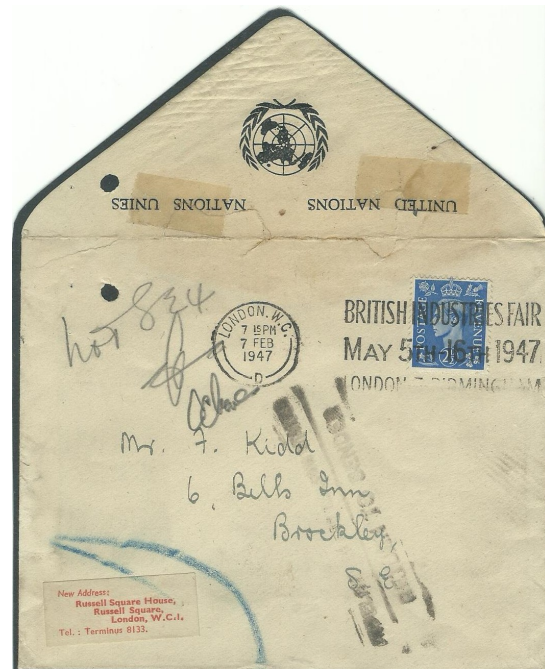 UNITED NATIONS NATIONS UNIES
not 834
LONDON. W.C.
7 15 PM
7 FEB
1947
D
BRITISH INDUSTRIES FAIR
MAY 5TH-16TH 1947
LONDON & BIRMINGHAM
POSTAGE
REVENUE
Mr. F. Kidd
6, Bells Inn
Brockley,
New Address:
Russell Square House,
Russell Square,
London, W.C.1.
Tel.: Terminus 8133.